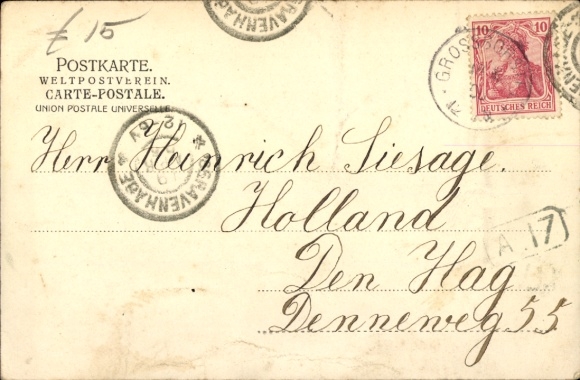 € 15
POSTKARTE.
WELTPOSTVEREIN.
CARTE-POSTALE.
UNION POSTALE UNIVERSELLE
10 10
DEUTSCHES REICH
'S GRAVENHAGE
Herr Heinrich Siesage.
Holland
A 17
Den Hag
Denneweg 55